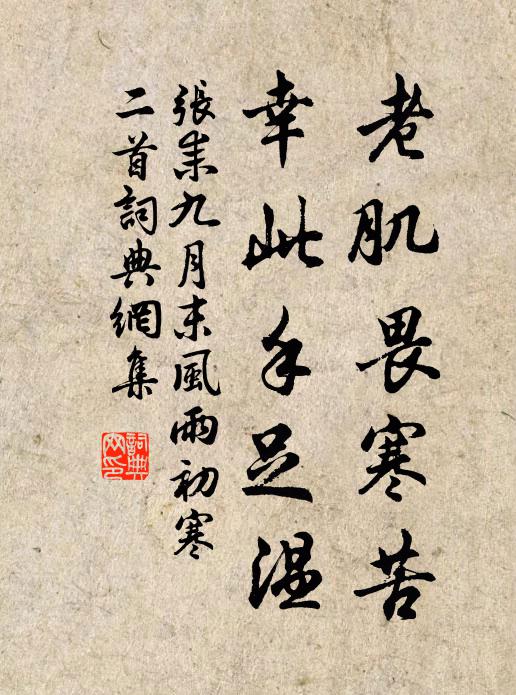 老肌畏寒苦
幸此手足温
張耒九月末風雨初寒
二首詞典網集
詞典
网印